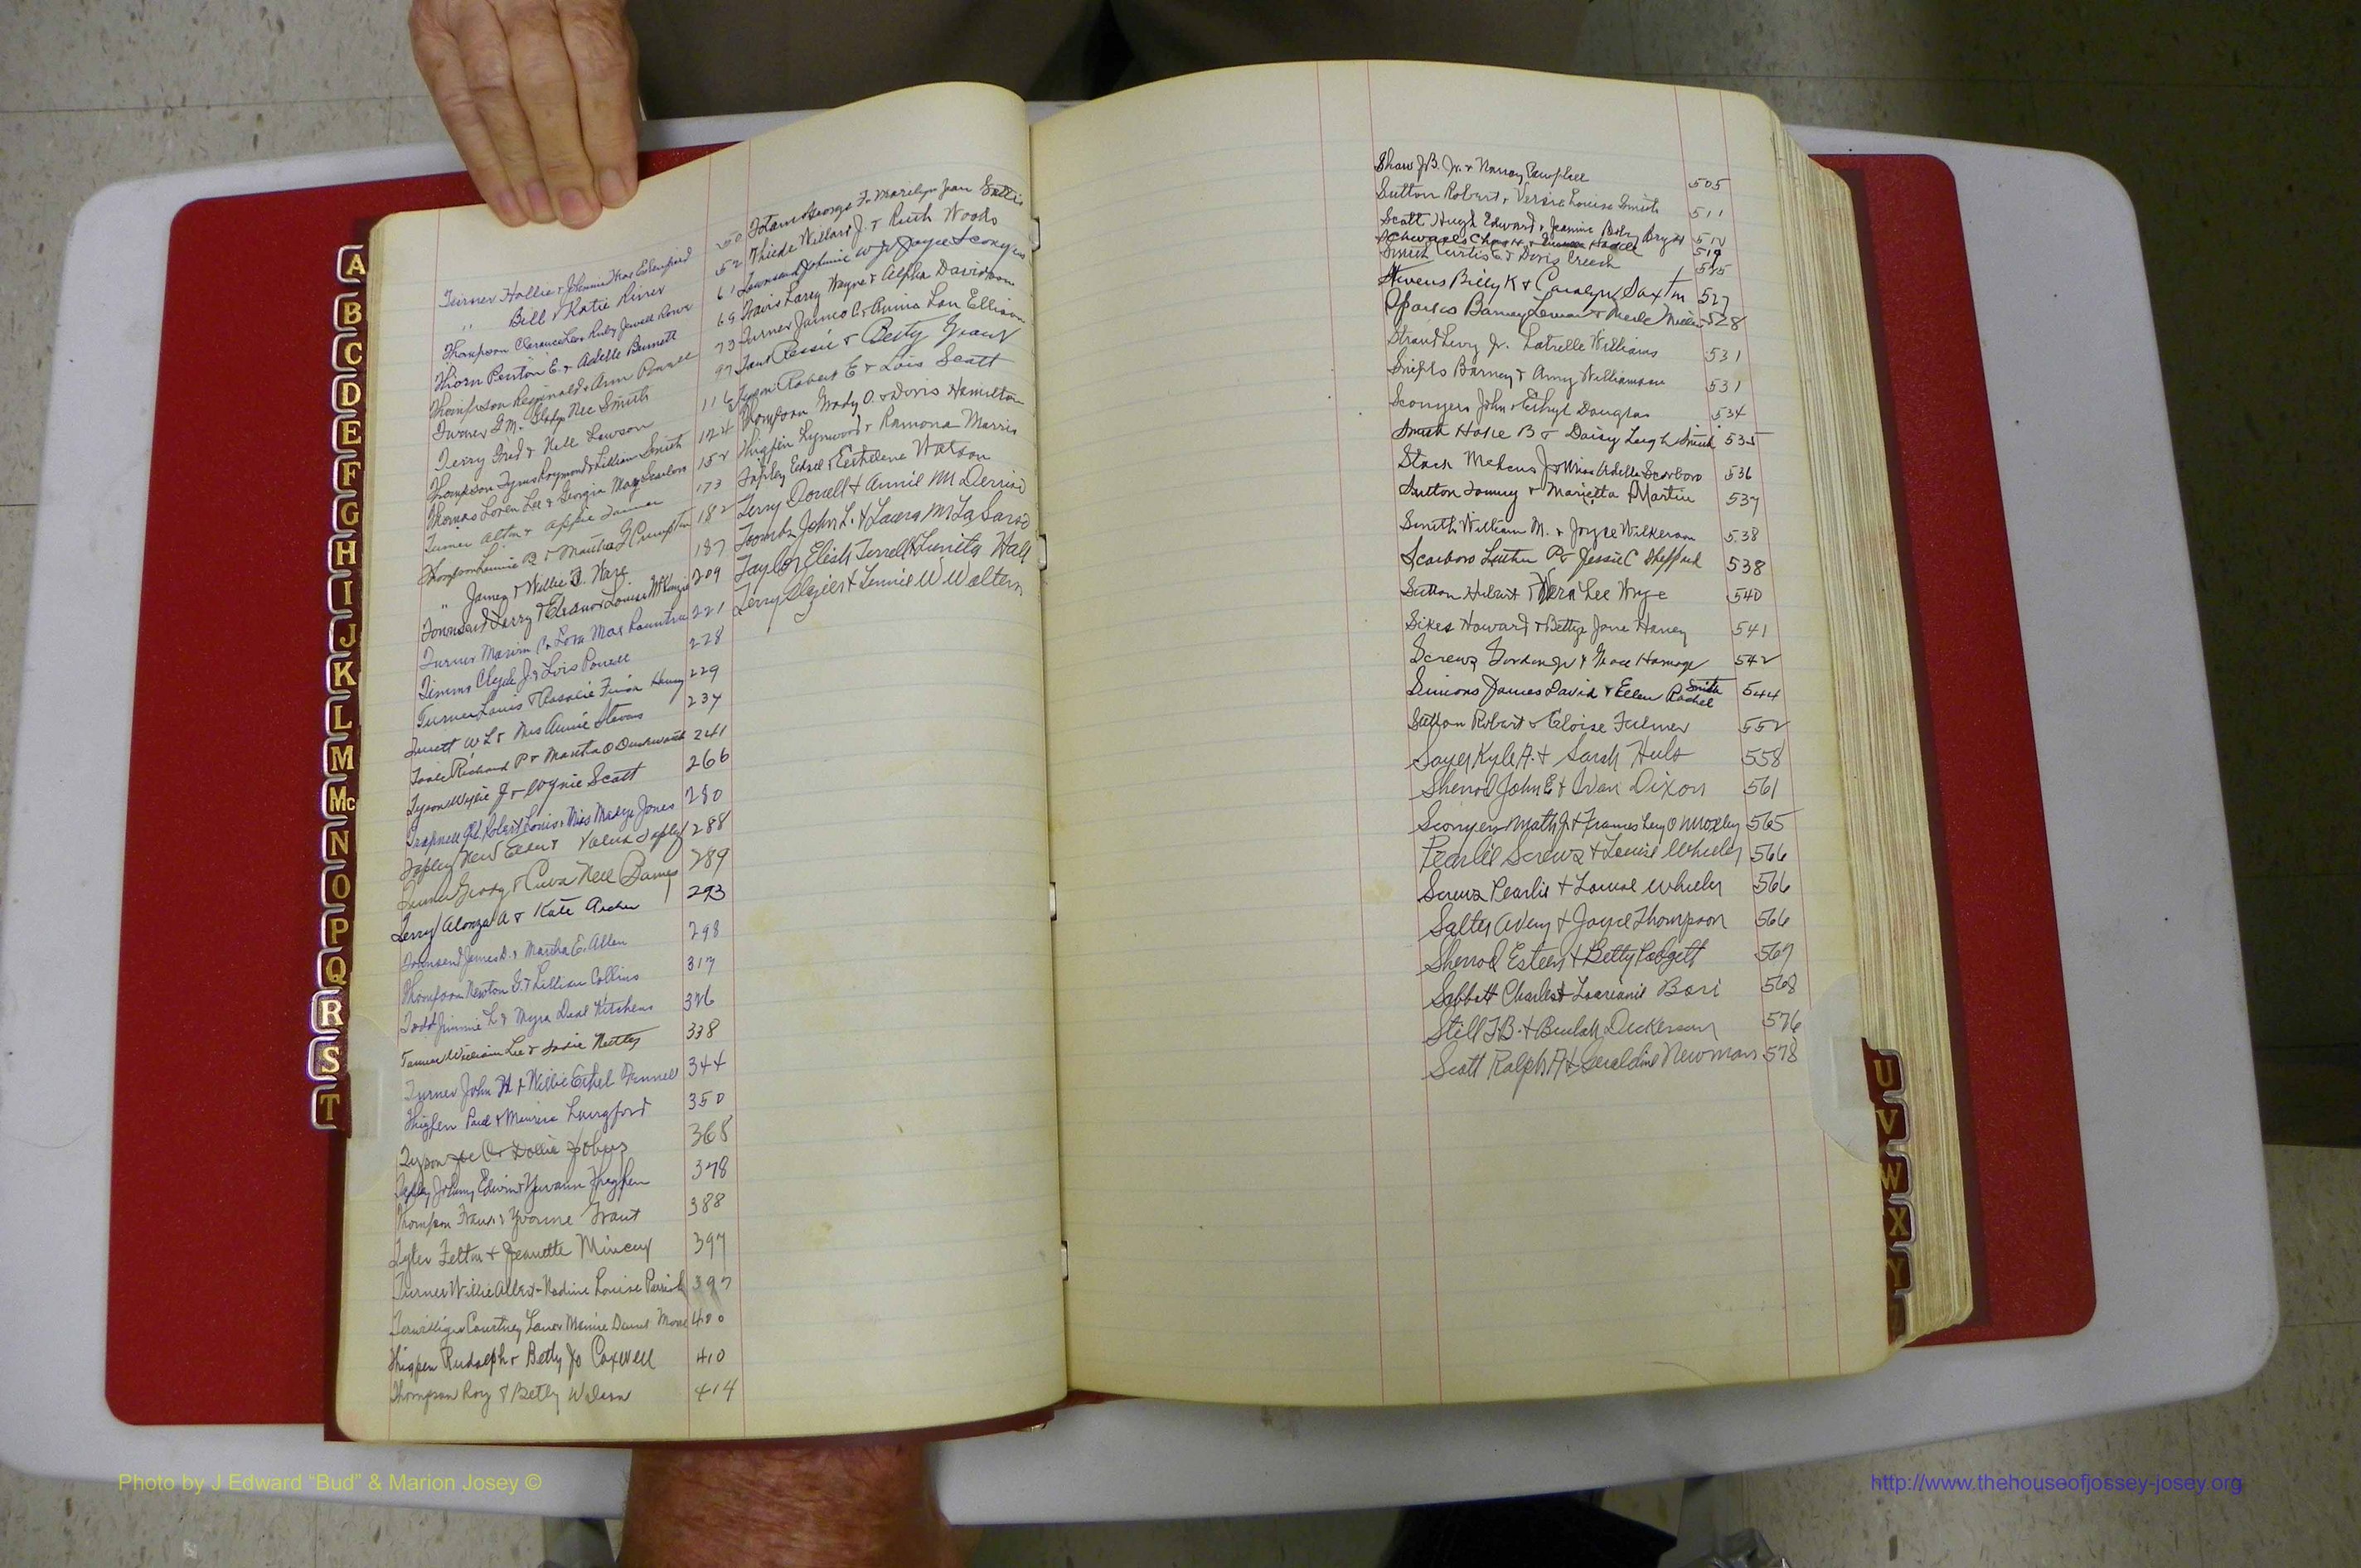 A
B
C
D
E
F
G
H
I
J
K
L
M
Mc
N
O
P
Q
R
S
T
Turner Hollie & Johnnie Mae
" Bill & Katie Riner
Thompson Clarence Lee & Ruby Jewell
Thorn Penton E. & Adelle Burnett
Thompson Reginald & Ann Powell
Turner J.M. Gladys Nee Smith
Terry Fred & Nell Lawson
Thompson Raymond & Lillian Smith
Thomas Loren Lee & Georgia Mae Scarboro
Turner Alton & Appie Tanner
Thompson Lennie B & Martha J Crumpton
" James & Willie B. Ware
Townsend Larry & Eleanor Louise McKenzie
Turner Marvin C. & Lora Mae Rountree
Timms Clyde J. & Lois Powell
Turner Louis & Rosalie
W L & Mrs Annie Stevens
Richard P & Martha O Duckworth
Tyson Wylie J & Wynie Scott
Trapnell Robert Louis & Miss Madge Jones
Tapley New Elbert & Tapley
Grady & Cuba Nell Barnes
Terry Alonza A & Kate Archer
Townsend James D. & Martha E. Allen
Thompson Newton G. & Lillian Collins
Todd Jimmie L & Myra Deal Kitchens
Tanner William Lee & Sadie Nettles
Turner John H & Willie Ethel Fennell
Thigpen Paul & Maurice Langford
Tyson Joe C & Dollie Johns
Tapley Johnny Edwin & Thigpen
Thompson Francis Yvonne Grant
Tyler Felton & Jeanette Mincey
Turner Willie Albert & Nadine Louise Parrish
Terwilliger Courtney Lane & Mamie Daniel
Thigpen Rudolph & Betty Jo Coxwell
Thompson Roy & Betty Wilson
52
61
69
73
97
116
124
152
173
182
187
209
221
228
229
237
241
266
280
288
289
293
298
317
326
338
344
350
368
378
388
397
397
400
410
414
George F. Marilyn Jean
Thiede Willard J. & Ruth Woods
Townsend Johnnie W Jr Joyce Sconyers
Travis Larry Wayne & Alpha Davidson
Turner James C. & Annia Lou Ellison
& Betty Grant
Tyson Robert E & Lois Scott
Thompson Grady O. & Doris Hamilton
Thigpen Lynwood & Ramona Morris
Tapley Edsel & Earthelene Watson
Terry Donell & Annie M Derriso
Toombs John L. & Laura M LaSarso
Taylor Elish Terrell & Lunita Hall
Terry & Lennie W Walters
Shaw J.B. Jr. & Nancy Campbell 505
Sutton Robert & Versia Louise Smith 511
Scott Hugh Edward & Jeanine Bryant 512
519
Smith Curtis E & Doris Creech 525
Stevens Billy K & Carolyn Saxton 527
Sparks Barney Leman & Merle Miller 528
Strand Levy Jr. Latrelle Williams 531
Snipes Barney & Amy Williamson 531
Sconyers John & Ethyl Douglas 534
Smith Hoke B & Daisy Leigh Smith 535
Stack Mekens J & Miss Adelle Scarboro 536
Sutton Tommy & Marietta Martin 537
Smith William M. & Joyce Wilkerson 538
Scarboro Luther P & Jessie C Sheppard 538
Sutton Hubert & Vera Lee Wye 540
Sikes Howard & Bettye Jane Haney 541
Screws Gordon Jr & Grace Hamage 542
Simons James David & Ellen Rachel Smith 544
Sutton Robert & Eloise Fulmer 552
Sayer Kyle A. & Sarah Hulo 558
Sherrod John E & Evan Dixon 561
Sconyers Math J. & Frances Lucy O Moxley 565
Pearlie Screws & Louise Wheeler 566
Screws Pearlie & Louise Wheeler 566
Salter Avery & Joyce Thompson 566
Sherrod Esteen & Betty Padgett 567
Sabbatt Charles & Loarianie Bari 568
Still J.B. & Beulah Dickerson 576
Scott Ralph A & Geraldine Newman 578
U
V
W
X
Y
Photo by J Edward “Bud” & Marion Josey ©
http://www.thehouseofjossey-josey.org